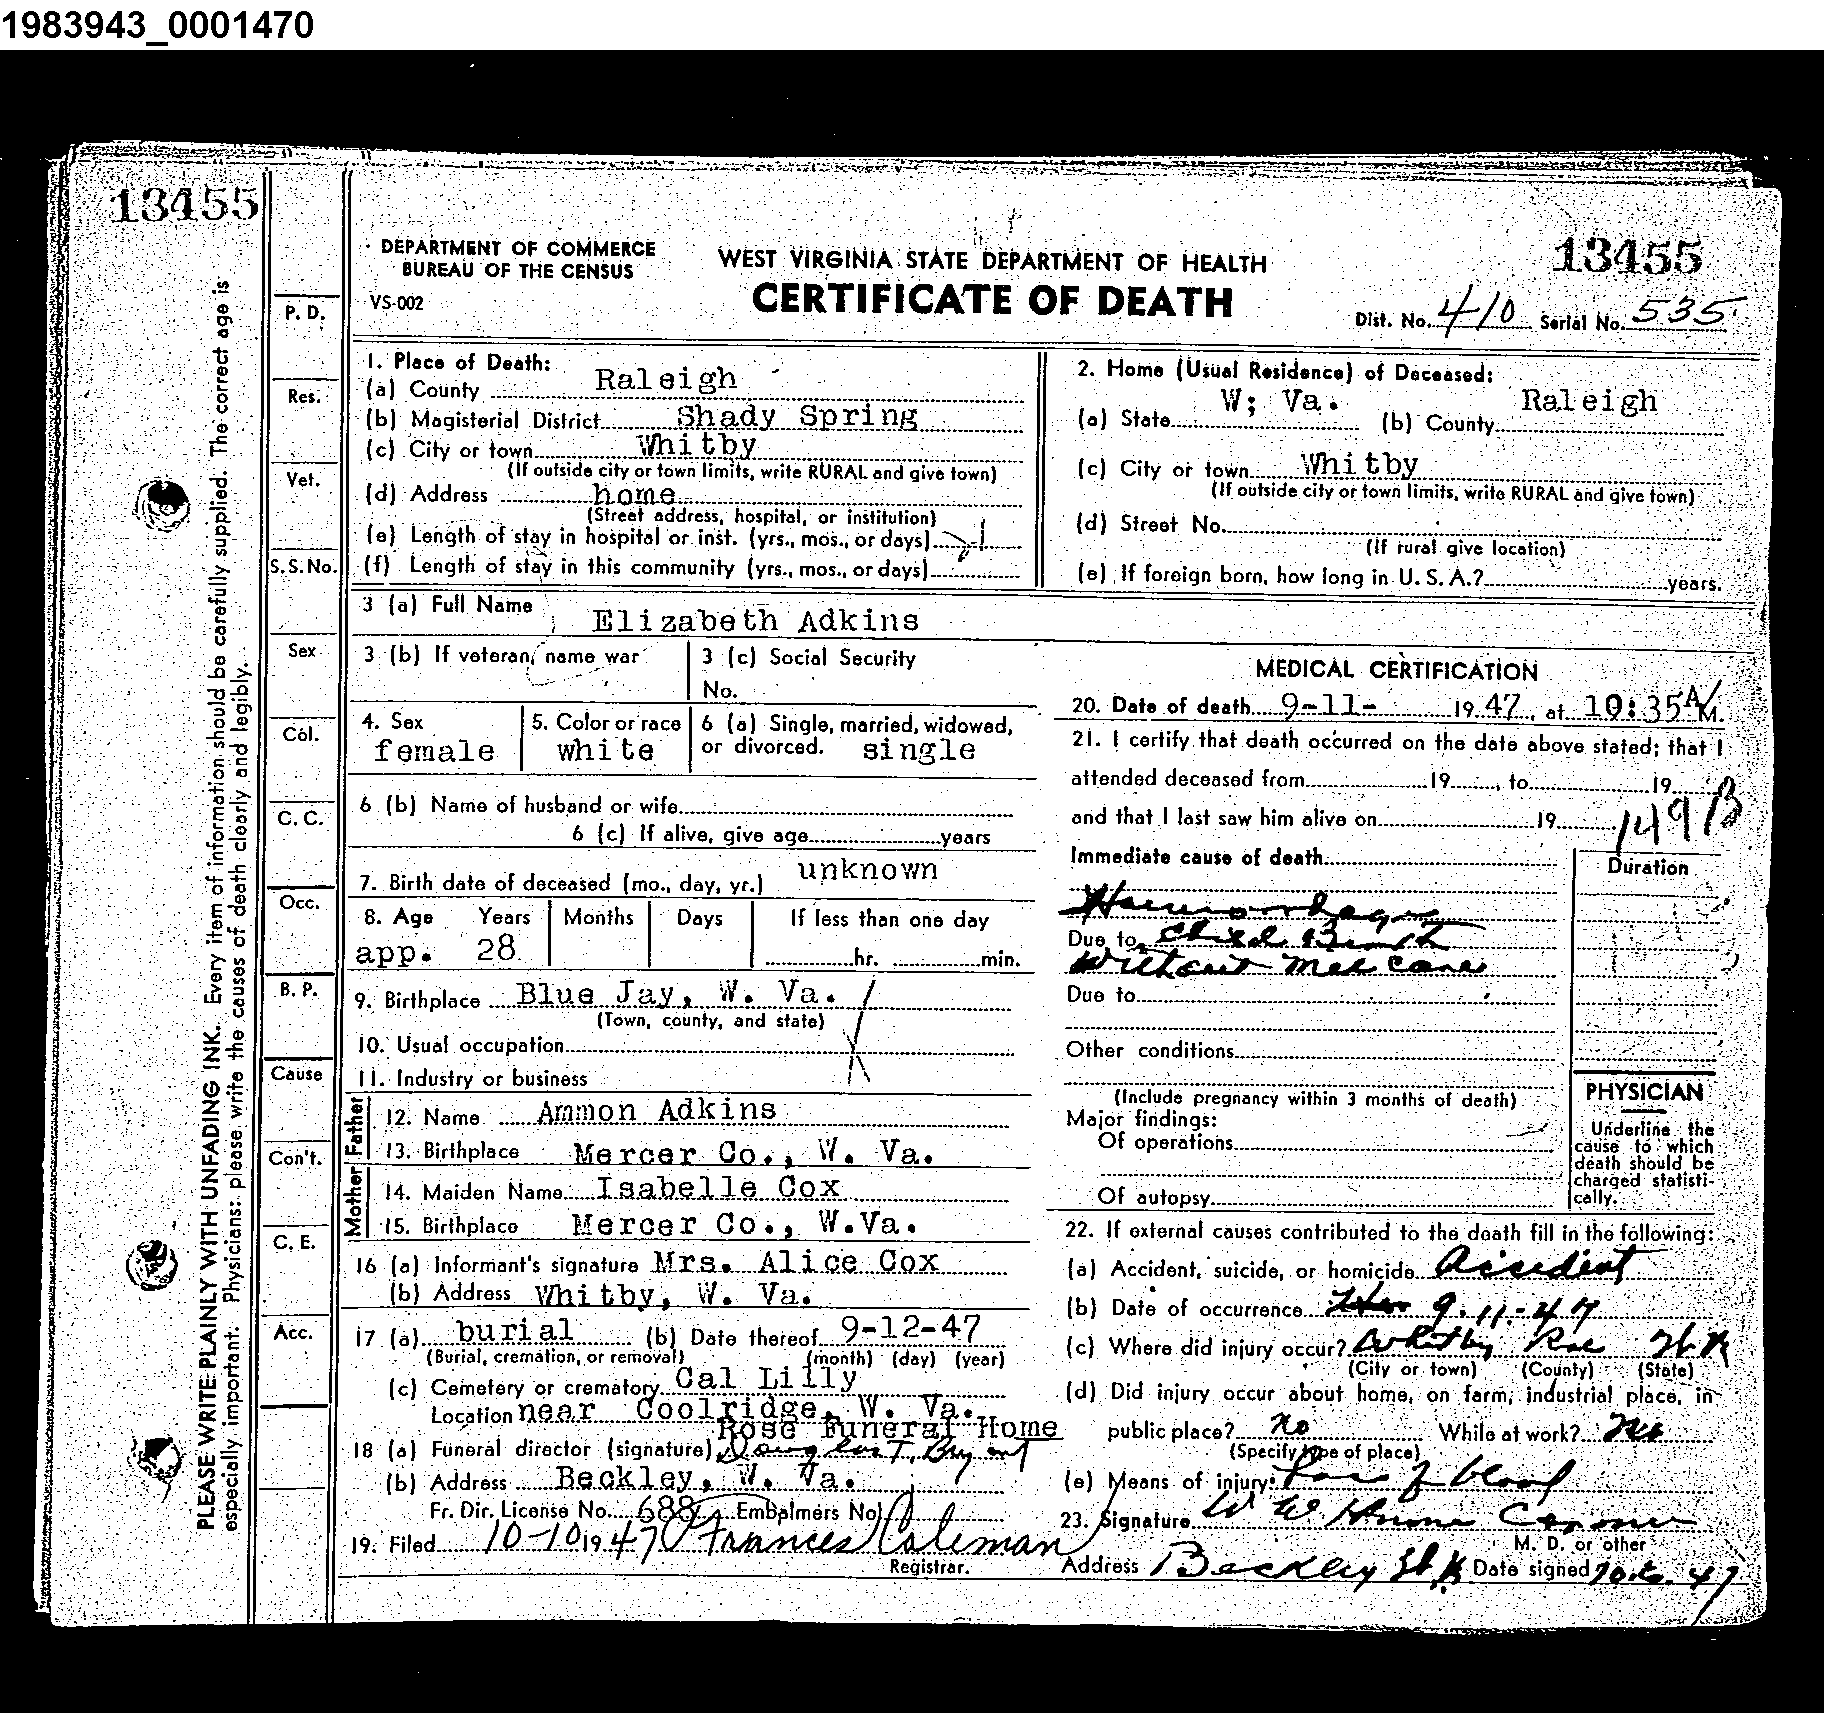 1983943_0001470
13455
13455
DEPARTMENT OF COMMERCE
BUREAU OF THE CENSUS
VS-002
WEST VIRGINIA STATE DEPARTMENT OF HEALTH
CERTIFICATE OF DEATH
Dist. No. 410 Serial No. 535
PLEASE WRITE PLAINLY WITH UNFADING INK. Every item of information should be carefully supplied. The correct age is
especially important. Physicians: please write the causes of death clearly and legibly.
P. D.
Res.
Vet.
S. S. No.
Sex
Col.
C. C.
Occ.
B. P.
Cause
Con't.
C. E.
Acc.
1. Place of Death:
(a) County Raleigh
(b) Magisterial District Shady Spring
(c) City or town Whitby
(If outside city or town limits, write RURAL and give town)
(d) Address home
(Street address, hospital, or institution)
(e) Length of stay in hospital or inst. (yrs., mos., or days)
(f) Length of stay in this community (yrs., mos., or days)
2. Home (Usual Residence) of Deceased:
(a) State W; Va. (b) County Raleigh
(c) City or town Whitby
(If outside city or town limits, write RURAL and give town)
(d) Street No.
(If rural give location)
(e) If foreign born, how long in U. S. A.? years.
3 (a) Full Name Elizabeth Adkins
3 (b) If veteran, name war
3 (c) Social Security
No.
4. Sex female
5. Color or race white
6 (a) Single, married, widowed,
or divorced. single
6 (b) Name of husband or wife
6 (c) If alive, give age years
7. Birth date of deceased (mo., day, yr.) unknown
8. Age Years Months Days If less than one day
app. 28 hr. min.
9. Birthplace Blue Jay, W. Va.
(Town, county, and state)
10. Usual occupation
11. Industry or business
Father
12. Name Ammon Adkins
13. Birthplace Mercer Co., W. Va.
Mother
14. Maiden Name Isabelle Cox
15. Birthplace Mercer Co., W.Va.
16 (a) Informant's signature Mrs. Alice Cox
(b) Address Whitby, W. Va.
17 (a) burial (b) Date thereof 9-12-47
(Burial, cremation, or removal) (month) (day) (year)
(c) Cemetery or crematory Cal Lilly
Location near Coolridge, W. Va.
Rose Funeral Home
18 (a) Funeral director (signature) Douglas T. Bryant
(b) Address Beckley, W. Va.
Fr. Dir. License No. 688 Embalmers No.
19. Filed 10-10 1947 Frances Coleman
Registrar.
MEDICAL CERTIFICATION
20. Date of death 9-11- 1947, at 10:35 A M.
21. I certify that death occurred on the date above stated; that I
attended deceased from 19 , to 19
and that I last saw him alive on 19
149B
Immediate cause of death
Duration
Haemorhage
Due to Child Birth
Without Med Care
Due to
Other conditions
(Include pregnancy within 3 months of death)
Major findings:
Of operations
Of autopsy
PHYSICIAN
Underline the
cause to which
death should be
charged statisti-
cally.
22. If external causes contributed to the death fill in the following:
(a) Accident, suicide, or homicide Accident
(b) Date of occurrence 9-11-47
(c) Where did injury occur? Whitby Ral
(City or town) (County) (State)
(d) Did injury occur about home, on farm, industrial place, in
public place? No While at work?
(Specify type of place)
(e) Means of injury: Loss of blood
23. Signature W W Hume Coroner
M. D. or other
Address Beckley Date signed